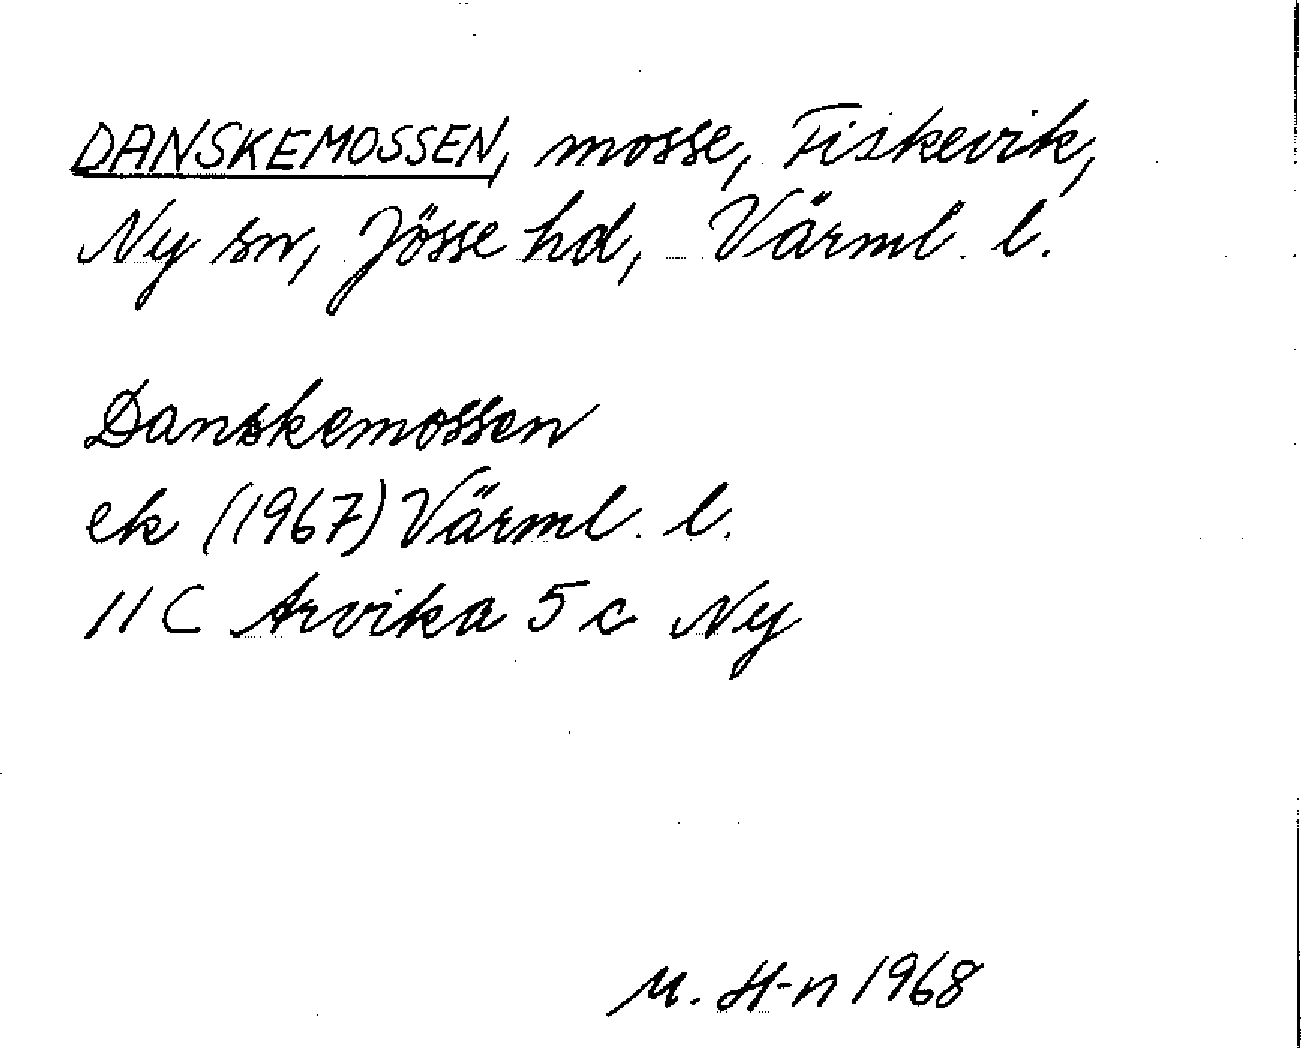 DANSKEMOSSEN, mosse, Fiskevik,
Ny sn, Jösse hd, Värml. l.
Danskemossen
ek (1967) Värml. l.
11 C Arvika 5 c Ny
M. H-n 1968